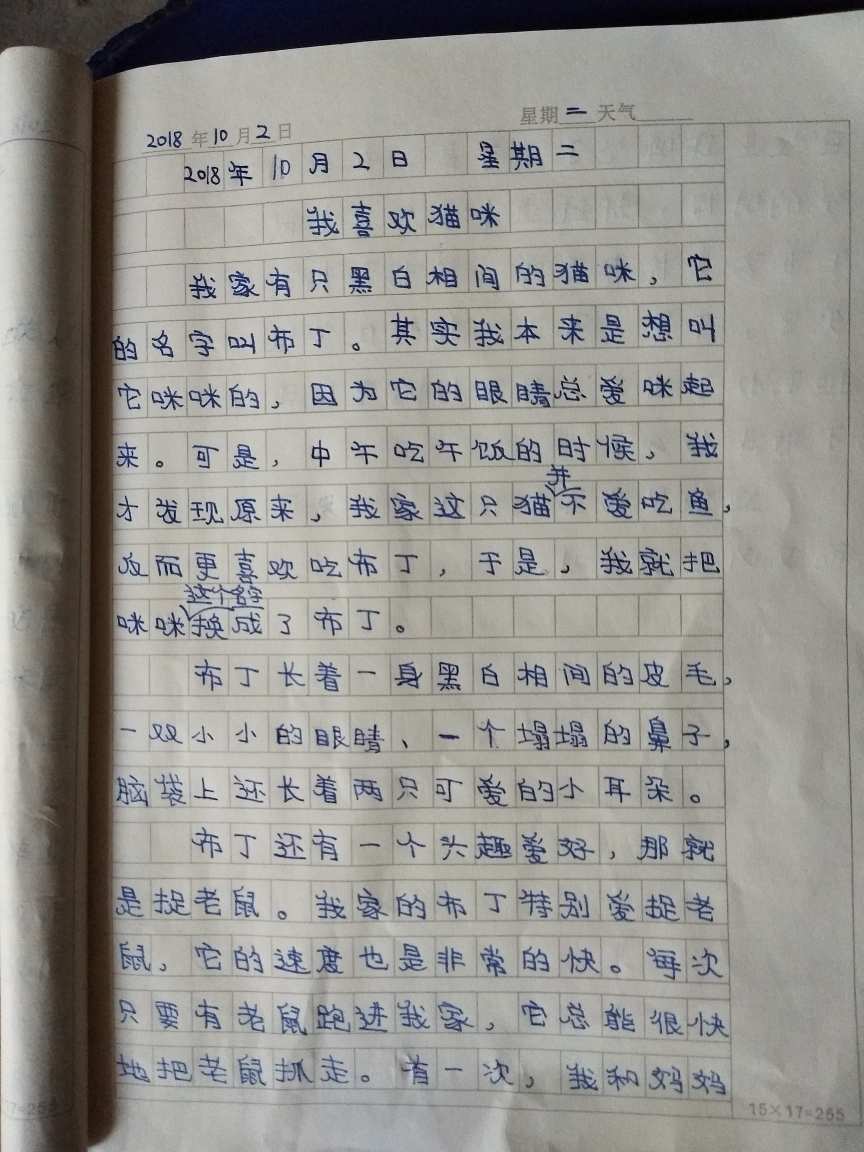 2018年10月2日 星期二天气
2018年 10月2日 星期二
我喜欢猫咪
我家有只黑白相间的猫咪，它
的名字叫布丁。其实我本来是想叫
它咪咪的，因为它的眼睛总爱咪起
来。可是，中午吃午饭的时候，我
并
才发现原来，我家这只猫不爱吃鱼，
反而更喜欢吃布丁，于是，我就把
这个名字
咪咪换成了布丁。
布丁长着一身黑白相间的皮毛，
一双小小的眼睛、一个塌塌的鼻子，
脑袋上还长着两只可爱的小耳朵。
布丁还有一个兴趣爱好，那就
是捉老鼠。我家的布丁特别爱捉老
鼠，它的速度也是非常的快。每次
只要有老鼠跑进我家，它总能很快
地把老鼠抓走。有一次，我和妈妈
15×17=255